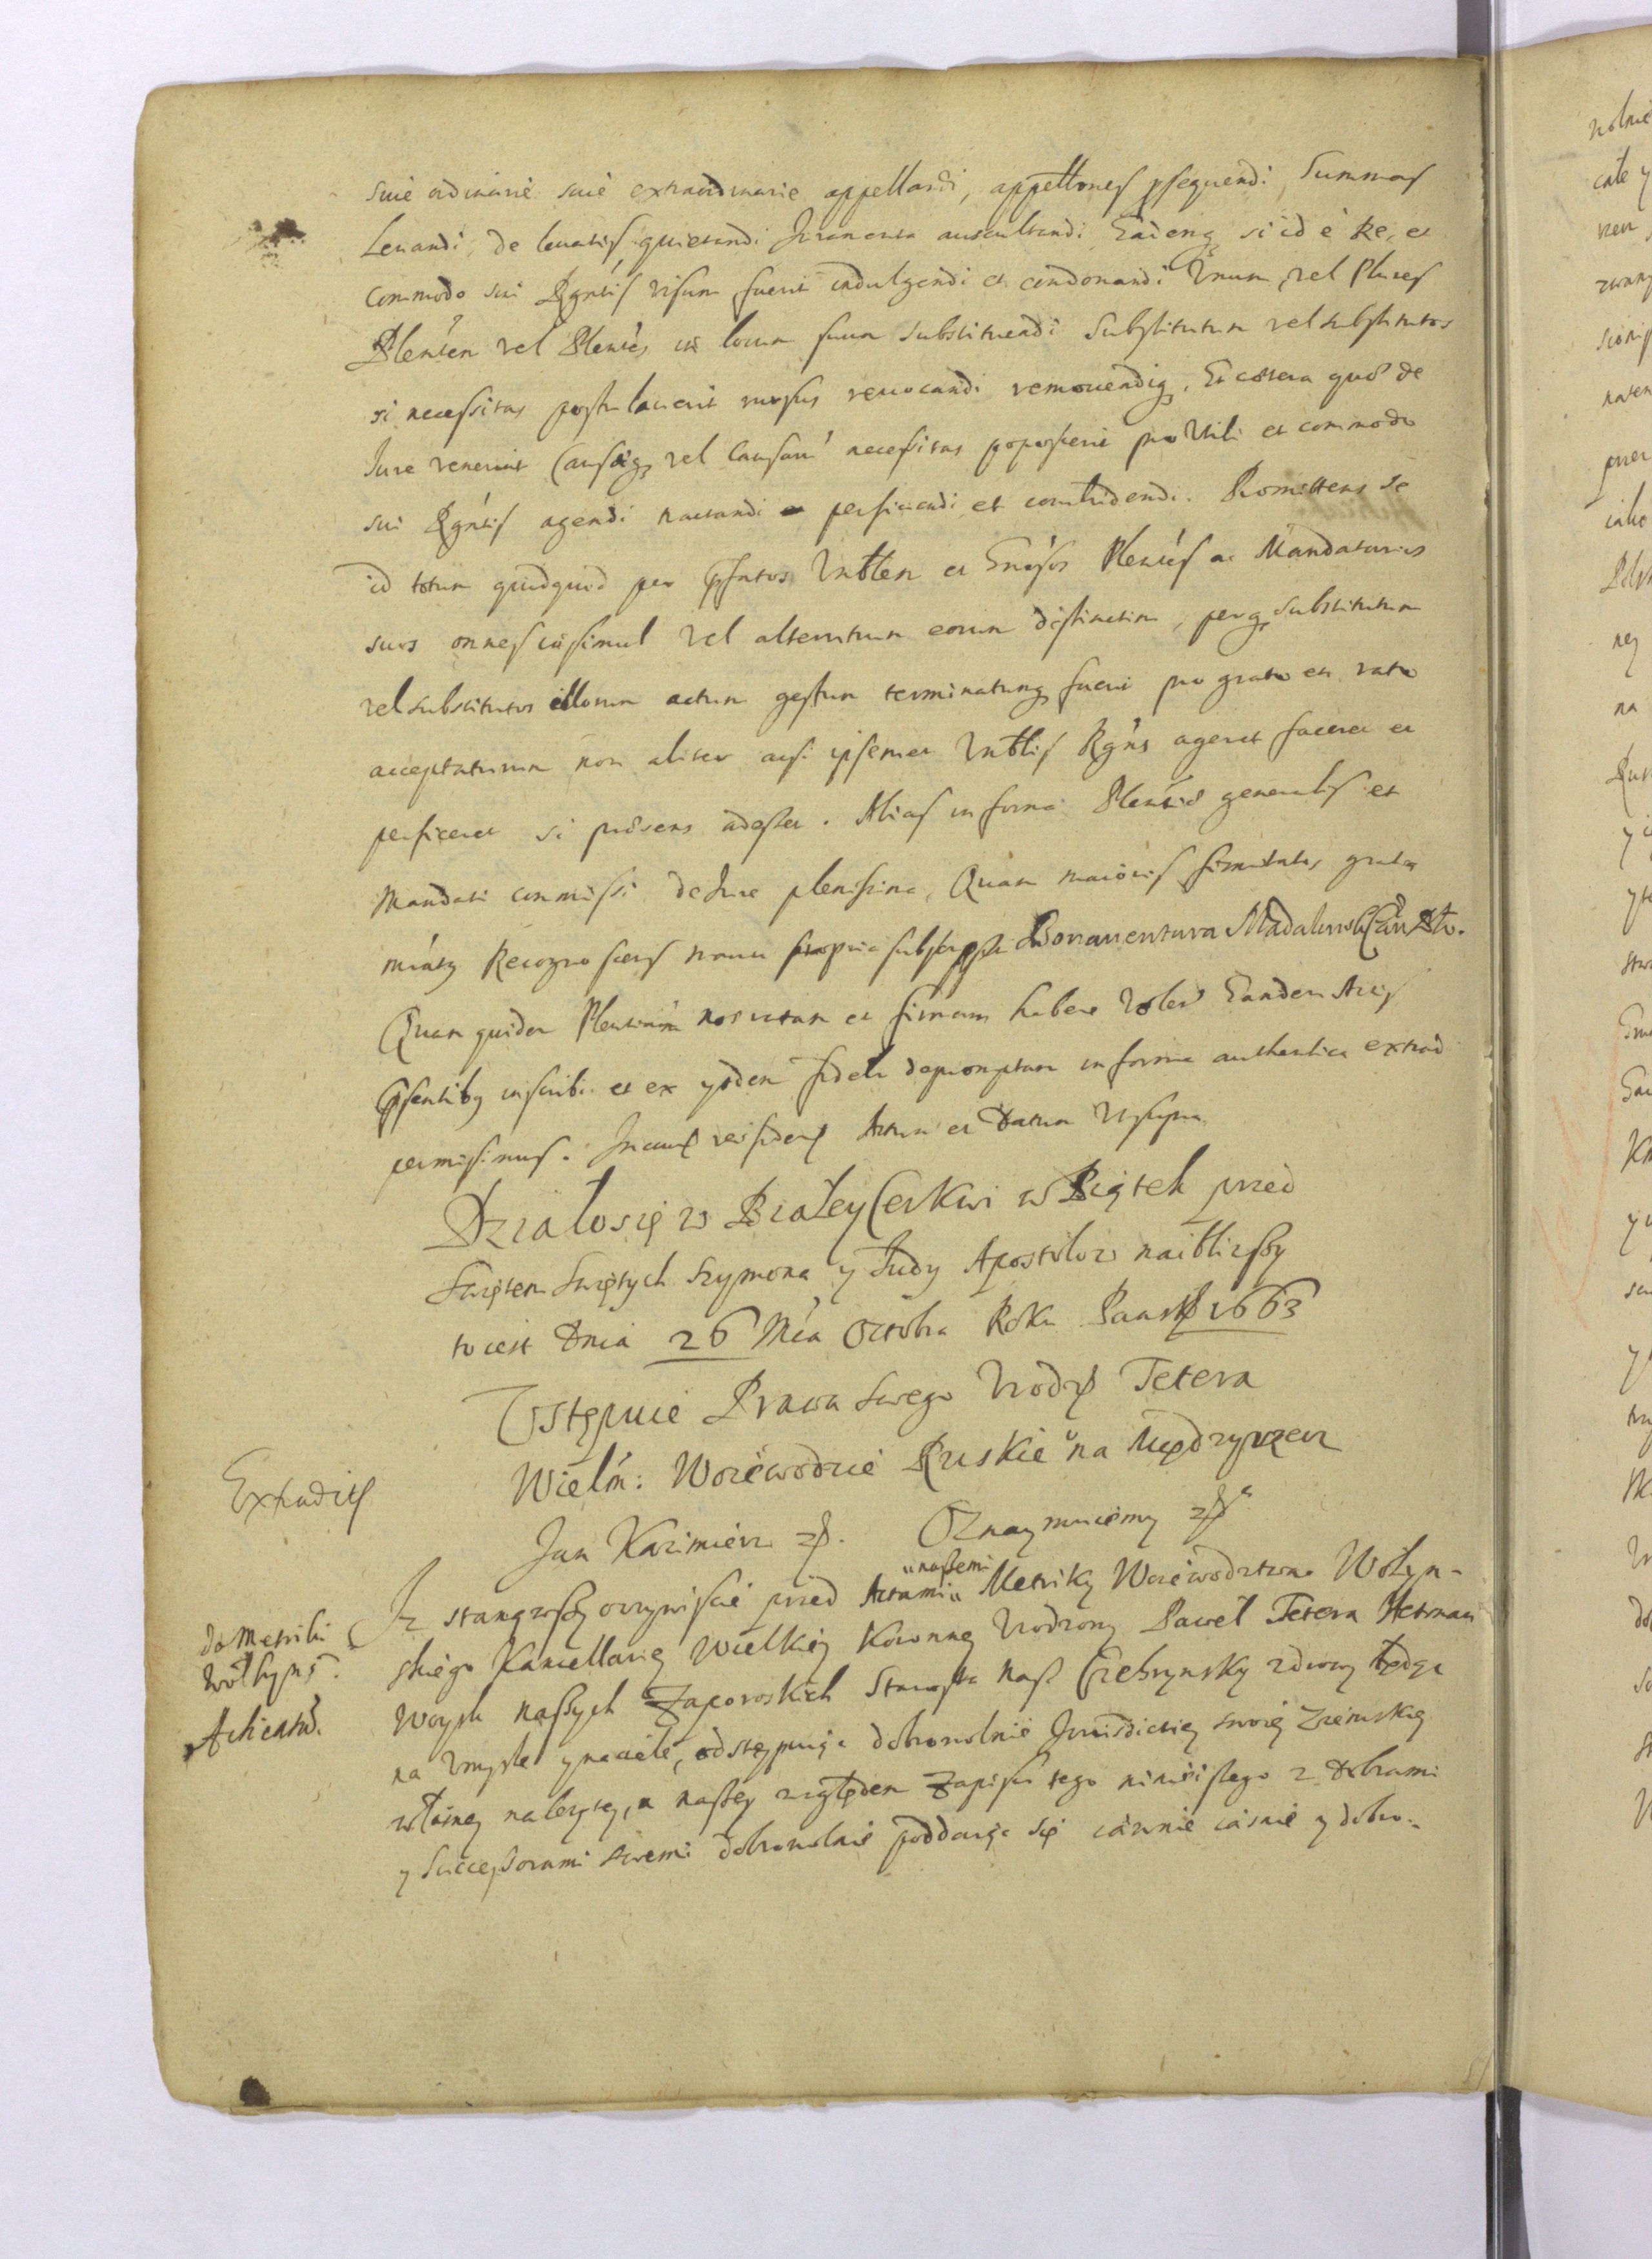 siue ordinarie siue extraordinarie appellandi, appellones psequendi, Summas
Leuandi, de leuatis quietandi Juramenta auscultandi Eademq si id è Re, et
commodo sui Rgntis visum fuerit indulgendi et condonandi Vnum vel Plures
Plenten vel Plentes in locum suum substituendi Substitutum vel substitutos
si necessitas postulauerit rursus reuocandi remouendiq, Et cætera quæ de
Jure venerint Causæq vel Causarũ necessitas poposcerit pro Vtili et commodo
sui Rgntis agendi tractandi perficiendi et concludendi. Promittens se
id totum quidquid per Pfatos Vrbtem et Gnesos Plentes ac Mandatarios
suos omnes insimul vel alterutrum eorum distinctim, perq substitutum
vel substitutos illorum actum gestum terminatumq fuerit pro grato et rato
accepturum non aliter acsi ipsemet Vrbtlis Rgns ageret faceret et
perficeret si præsens adesset. Alias in forma Plentiæ generalis et
Mandati commissi de Jure plenissima, Quam maioris firmitatis gratia
Recognoscens manu propria subscripsit Bonauentura Madalinski
Quam quidem Plentiam nos ratam et firmam habere volentes Eandem Actis
Psentibq inscribi et ex ysdem fideli depromptam in forma authentica extrad
permisimus. In cuius rei fidem Actum et Datum Vt supra
Działosię w Białey Cerkwi w Piątek przed
Swiętem Swiętych Szymona y Judy Apostołow naibliższy
to iest Dnia 26 Mca Octobra Roku Pansk 1663
Vstępuie Prawa swego Vrodz Tetera
Wielm: Woiewodzie Ruskieo na Międzyrzecz
Extradit
Jan Kazimierz zp. Oznaymuiemy zp
do Metriki
Wołhyns.
Iz stanąwszy oczywiscie przed Actami "naszemi" Metriky Woiewodztwa Wołyn-
skiego Kancellariey Wielkiey Koronney Vrodzony Paweł Tetera Hetman
Woysk naszych Zaporoskich Starosta nasz Czehrynsky zdrowy będąc
na Vmysle y naciele, odstępuiąc dobrowolnie Jurisdictiey swoiey Ziemskiey
własney należytey, a naszey względem Zapisu tego ninieiszego z Dobrami
y Successorami swemi dobrowolnie poddaiąc się iawnie iasnie y dobro-